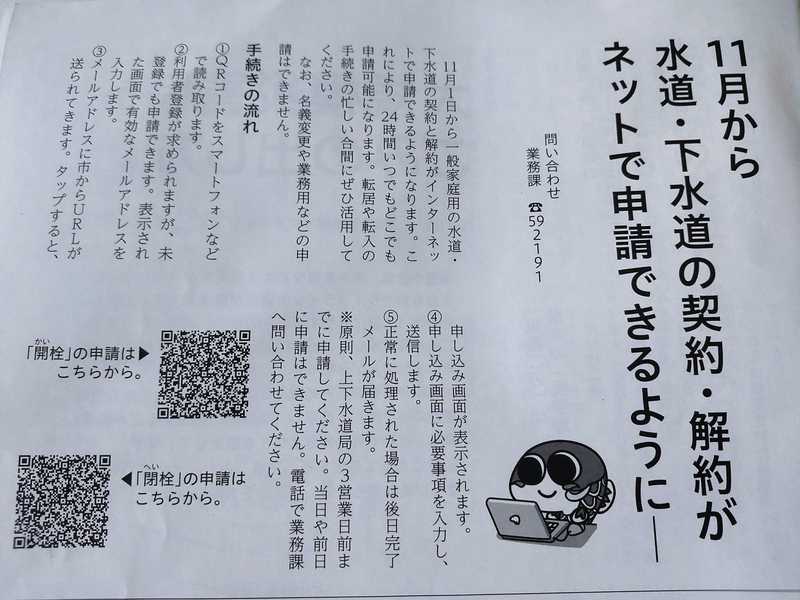 11月から
水道・下水道の契約・解約が
ネットで申請できるように――
問い合わせ
業務課 ☎592191
11月1日から一般家庭用の水道・
下水道の契約と解約がインターネッ
トで申請できるようになります。こ
れにより、24時間いつでもどこでも
申請可能になります。転居や転入の
手続きの忙しい合間にぜひ活用して
ください。
なお、名義変更や業務用などの申
請はできません。
手続きの流れ
①QRコードをスマートフォンなど
で読み取ります。
②利用者登録が求められますが、未
登録でも申請できます。表示され
た画面で有効なメールアドレスを
入力します。
③メールアドレスに市からURLが
送られてきます。タップすると、
申し込み画面が表示されます。
④申し込み画面に必要事項を入力し、
送信します。
⑤正常に処理された場合は後日完了
メールが届きます。
※原則、上下水道局の3営業日前ま
でに申請してください。当日や前日
に申請はできません。電話で業務課
へ問い合わせてください。
「開栓」の申請は▶
かい
こちらから。
◀「閉栓」の申請は
へい
こちらから。